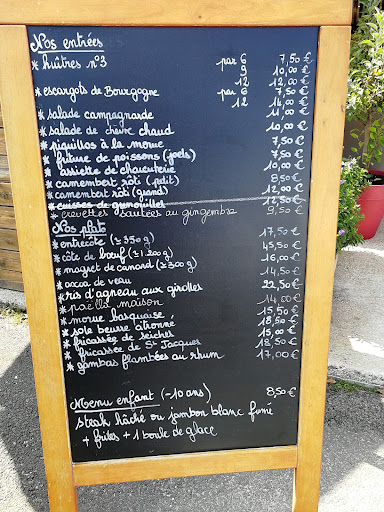 Nos entrées
* huîtres n°3 par 6 7,50 €
9 10,00 €
12 12,00 €
* escargots de Bourgogne par 6 7,50 €
12 14,00 €
* salade campagnarde 11,00 €
* salade de chèvre chaud 10,00 €
* piquillos à la morue 7,50 €
* friture de poissons (joels) 7,50 €
* assiette de charcuterie 10,00 €
* camembert rôti (petit) 8,50 €
* camembert rôti (grand) 12,00 €
* cuisses de grenouilles 12,50 €
* crevettes sautées au gingembre 9,50 €
Nos plats
* entrecôte (≥ 350 g) 17,50 €
* côte de bœuf (≥ 1 200 g) 45,50 €
* magret de canard (≥ 300 g) 16,00 €
* axoa de veau 14,50 €
* ris d'agneau aux girolles 22,50 €
* paëlla maison 14,00 €
* morue basquaise 15,50 €
* sole beurre citronné 18,50 €
* fricassée de seiches 15,00 €
* fricassée de St Jacques 18,50 €
* gambas flambées au rhum 17,00 €
Menu enfant (-10 ans) 8,50 €
steak hâché ou jambon blanc fumé
+ frites + 1 boule de glace